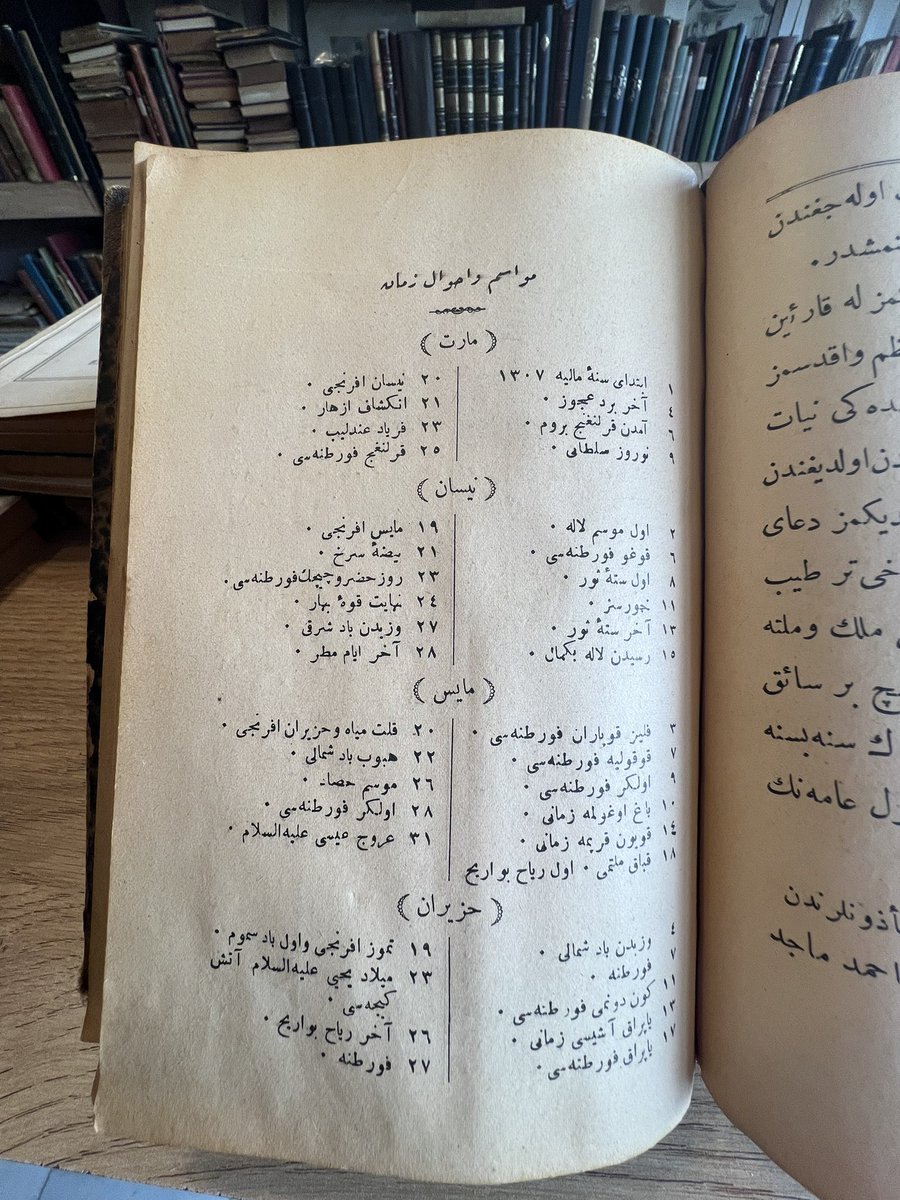 مواسم واحوال زمان
( مارت )
١ ابتدای سنهٔ مالیه ١٣٠٧
٤ آخر برد عجوز ٠
٦ آمدن قرلنغیج بروم ٠
٩ نوروز سلطانی ٠
٢٠ نیسان افرنجی ٠
٢١ انکشاف ازهار ٠
٢٣ فریاد عندلیب ٠
٢٥ قرلنغیج فورطنه‌سی ٠
( نیسان )
٢ اول موسم لاله ٠
٦ قوغو فورطنه‌سی ٠
٨ اول ستهٔ ثور ٠
١١ نچورسنر ٠
١٣ آخر ستهٔ ثور ٠
١٥ رسیدن لاله بکمال ٠
١٩ مایس افرنجی ٠
٢١ بیضهٔ سرخ ٠
٢٣ روز حضر وچیچك فورطنه‌سی ٠
٢٤ نهایت قوهٔ بهار ٠
٢٧ وزیدن باد شرقی ٠
٢٨ آخر ایام مطر ٠
( مایس )
٣ فلیز قوپاران فورطنه‌سی ٠
٧ قوقولیه فورطنه‌سی ٠
٩ اولکر فورطنه‌سی ٠
١٠ باغ اوغولمه زمانی ٠
١٤ قویون قریمه زمانی ٠
١٨ قباق ملتمی ٠ اول ریاح بواریح
٢٠ قلت میاه وحزیران افرنجی ٠
٢٢ هبوب باد شمالی ٠
٢٦ موسم حصاد ٠
٢٨ اولکر فورطنه‌سی ٠
٣١ عروج عیسی علیه‌السلام ٠
( حزیران )
٤ وزیدن باد شمالی ٠
٧ فورطنه ٠
١١ کون دونمی فورطنه‌سی ٠
١٣ یاپراق آشیسی زمانی ٠
١٧ یاپراق فورطنه‌سی ٠
١٩ تموز افرنجی واول باد سموم ٠
٢٣ میلاد یحیی علیه‌السلام آتش
کیجه‌سی ٠
٢٦ آخر ریاح بواریح ٠
٢٧ فورطنه ٠
اوله‌جغندن
تمشدر ٠
له قارئین
واقدسمز
ده‌کی نیات
اولدیغندن
دیکمز دعای
تر طیب
ملك وملته
بر سائق
سنه‌بسنه
عامه‌نك
أذونلرندن
احمد ماجد